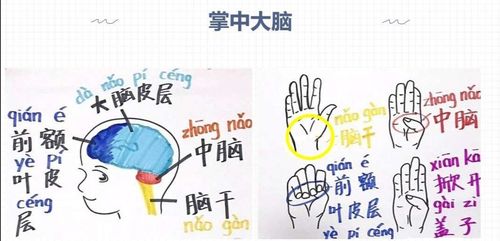 掌中大脑
dà nǎo pí céng
大脑皮层
qián é
前额
yè pí
叶皮
céng
层
zhōng nǎo
中脑
脑干
nǎo gàn
nǎo gàn
脑干
zhōng nǎo
中脑
qián é
前额
叶皮层
yè pí céng
xiān kā
掀开
gài zi
盖子